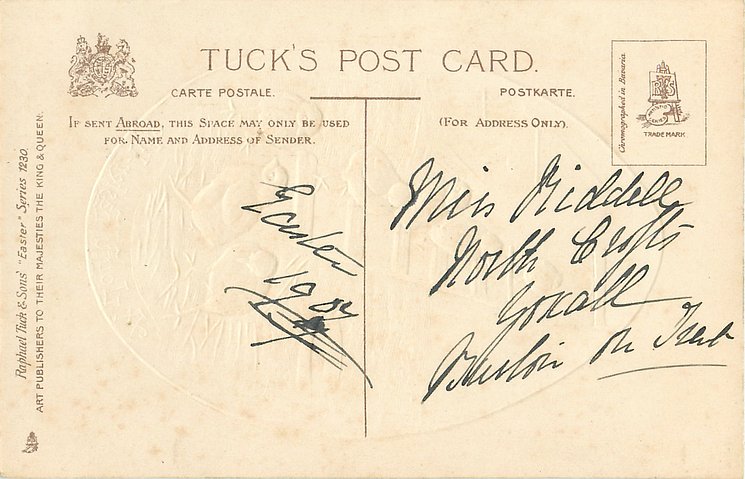 TUCK'S POST CARD.
CARTE POSTALE.
POSTKARTE.
IF SENT ABROAD, THIS SPACE MAY ONLY BE USED
FOR NAME AND ADDRESS OF SENDER.
(FOR ADDRESS ONLY).
Chromographed in Bavaria
TRADE MARK
Raphael Tuck & Sons' "Easter" Series 1230.
ART PUBLISHERS TO THEIR MAJESTIES THE KING & QUEEN.
Easter
1907
Miss Riddell
North Crofts
Yoxall
Burton on Trent